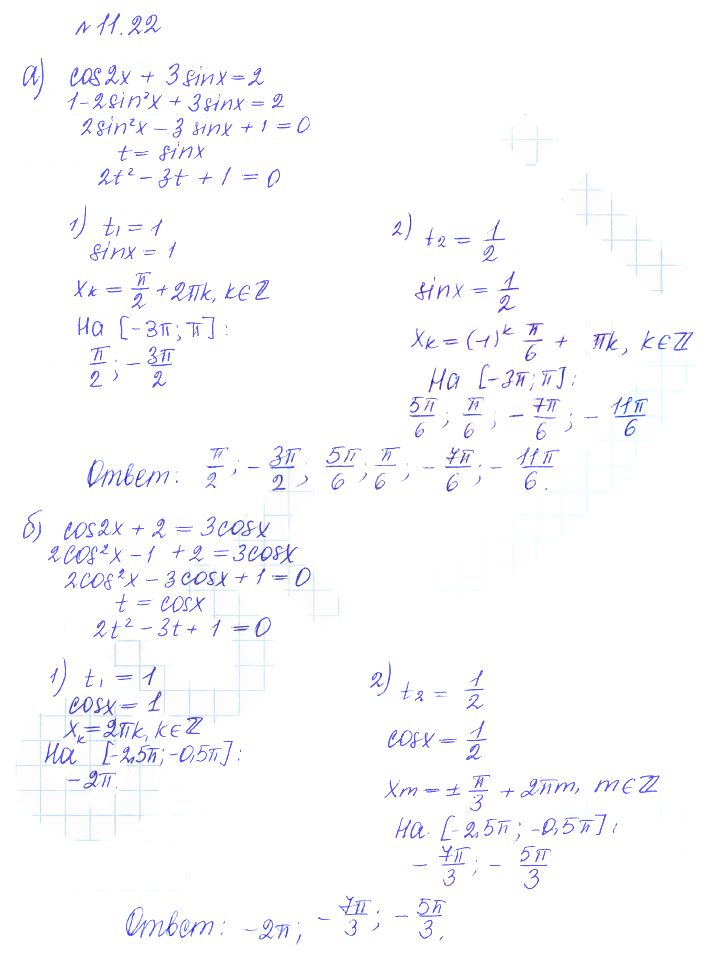 №11.22
а) cos2x + 3sinx = 2
1 - 2sin²x + 3sinx = 2
2sin²x - 3sinx + 1 = 0
t = sinx
2t² - 3t + 1 = 0
1) t₁ = 1
sinx = 1
xₖ = π/2 + 2πk, k∈ℤ
На [-3π; π]:
π/2; -3π/2
2) t₂ = 1/2
sinx = 1/2
xₖ = (-1)ᵏ π/6 + πk, k∈ℤ
На [-3π; π]:
5π/6; π/6; -7π/6; -11π/6
Ответ: π/2; -3π/2; 5π/6; π/6; -7π/6; -11π/6.
б) cos2x + 2 = 3cosx
2cos²x - 1 + 2 = 3cosx
2cos²x - 3cosx + 1 = 0
t = cosx
2t² - 3t + 1 = 0
1) t₁ = 1
cosx = 1
xₖ = 2πk, k∈ℤ
На [-2,5π; -0,5π]:
-2π.
2) t₂ = 1/2
cosx = 1/2
xm = ± π/3 + 2πm, m∈ℤ
На [-2,5π; -0,5π]:
-7π/3; -5π/3
Ответ: -2π; -7π/3; -5π/3.